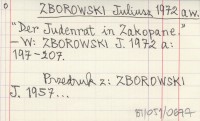 ZBOROWSKI Juliusz 1972 a w.
"Der Judenrat in Zakopane."
- W: ZBOROWSKI J. 1972 a:
197-207.
Przedruk z: ZBOROWSKI
J. 1957...